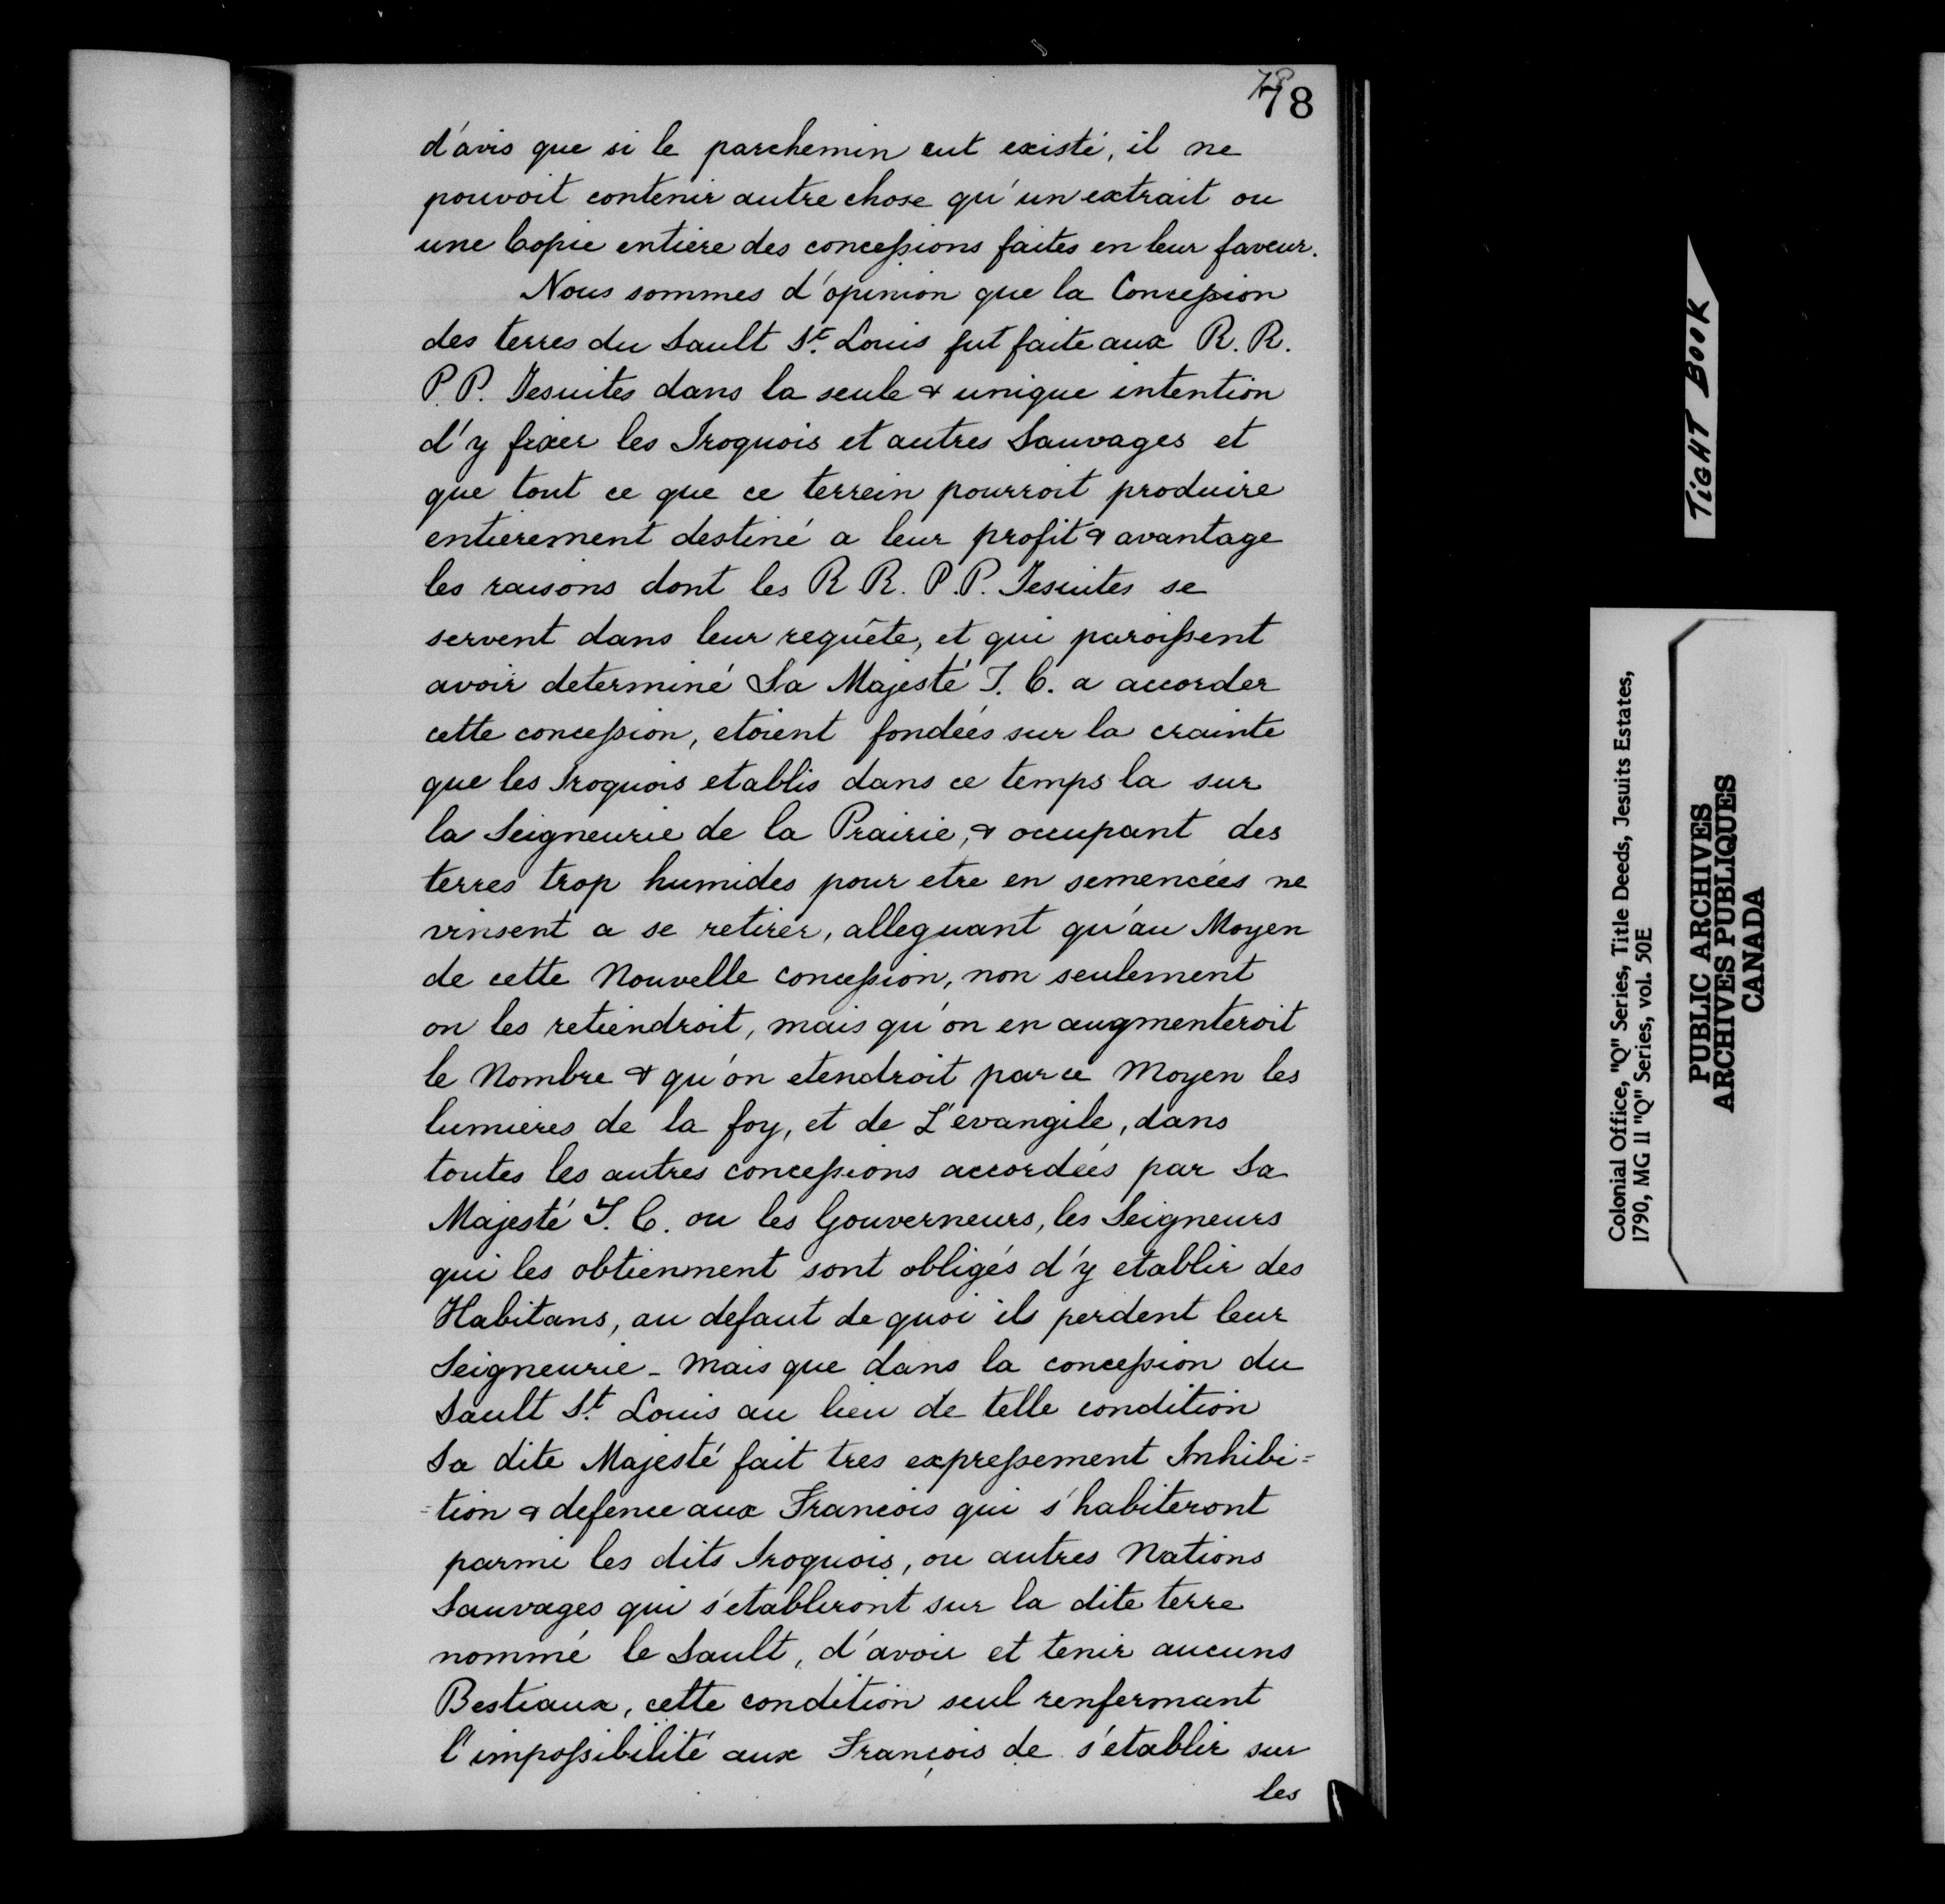 78
d'avis que si le parchemin eut existé, il ne
pouvoit contenir autre chose qu'un extrait ou
une Copie entiere des concessions faites en leur faveur.
Nous sommes d'opinion que la Concession
des terres du Sault St. Louis fut faite aux R. R.
P. P. Jesuites dans la seule & unique intention
d'y fixer les Iroquois et autres Sauvages et
que tout ce que ce terrein pourroit produire
entierement destiné a leur profit & avantage
les raisons dont les R R. P. P. Jesuites se
servent dans leur requête, et qui paroissent
avoir determiné Sa Majesté T. C. a accorder
cette concession, etoient fondées sur la crainte
que les Iroquois etablis dans ce temps la sur
la Seigneurie de la Prairie, & occupant des
terres trop humides pour etre en semencées ne
vinsent a se retirer, alleguant qu'au Moyen
de cette Nouvelle concession, non seulement
on les retiendroit, mais qu'on en augmenteroit
le Nombre & qu'on etendroit par ce Moyen les
lumieres de la foy, et de L'evangile, dans
toutes les autres concessions accordées par Sa
Majesté T. C. ou les Gouverneurs, les Seigneurs
qui les obtienment sont obligés d'y etablir des
Habitans, au defaut de quoi ils perdent leur
Seigneurie - Mais que dans la concession du
Sault St. Louis au lieu de telle condition
Sa dite Majesté fait tres expressement Inhibi=
=tion & defence aux Francois qui s'habiteront
parmi les dits Iroquois, ou autres Nations
Sauvages qui s'etabliront sur la dite terre
nommé le Sault, d'avoir et tenir aucuns
Bestiaux, cette condition seul renfermant
l'impossibilité aux François de s'etablir sur
les
TIGHT BOOK
Colonial Office, "Q" Series, Title Deeds, Jesuits Estates,
1790, MG 11 "Q" Series, vol. 50E
PUBLIC ARCHIVES
ARCHIVES PUBLIQUES
CANADA